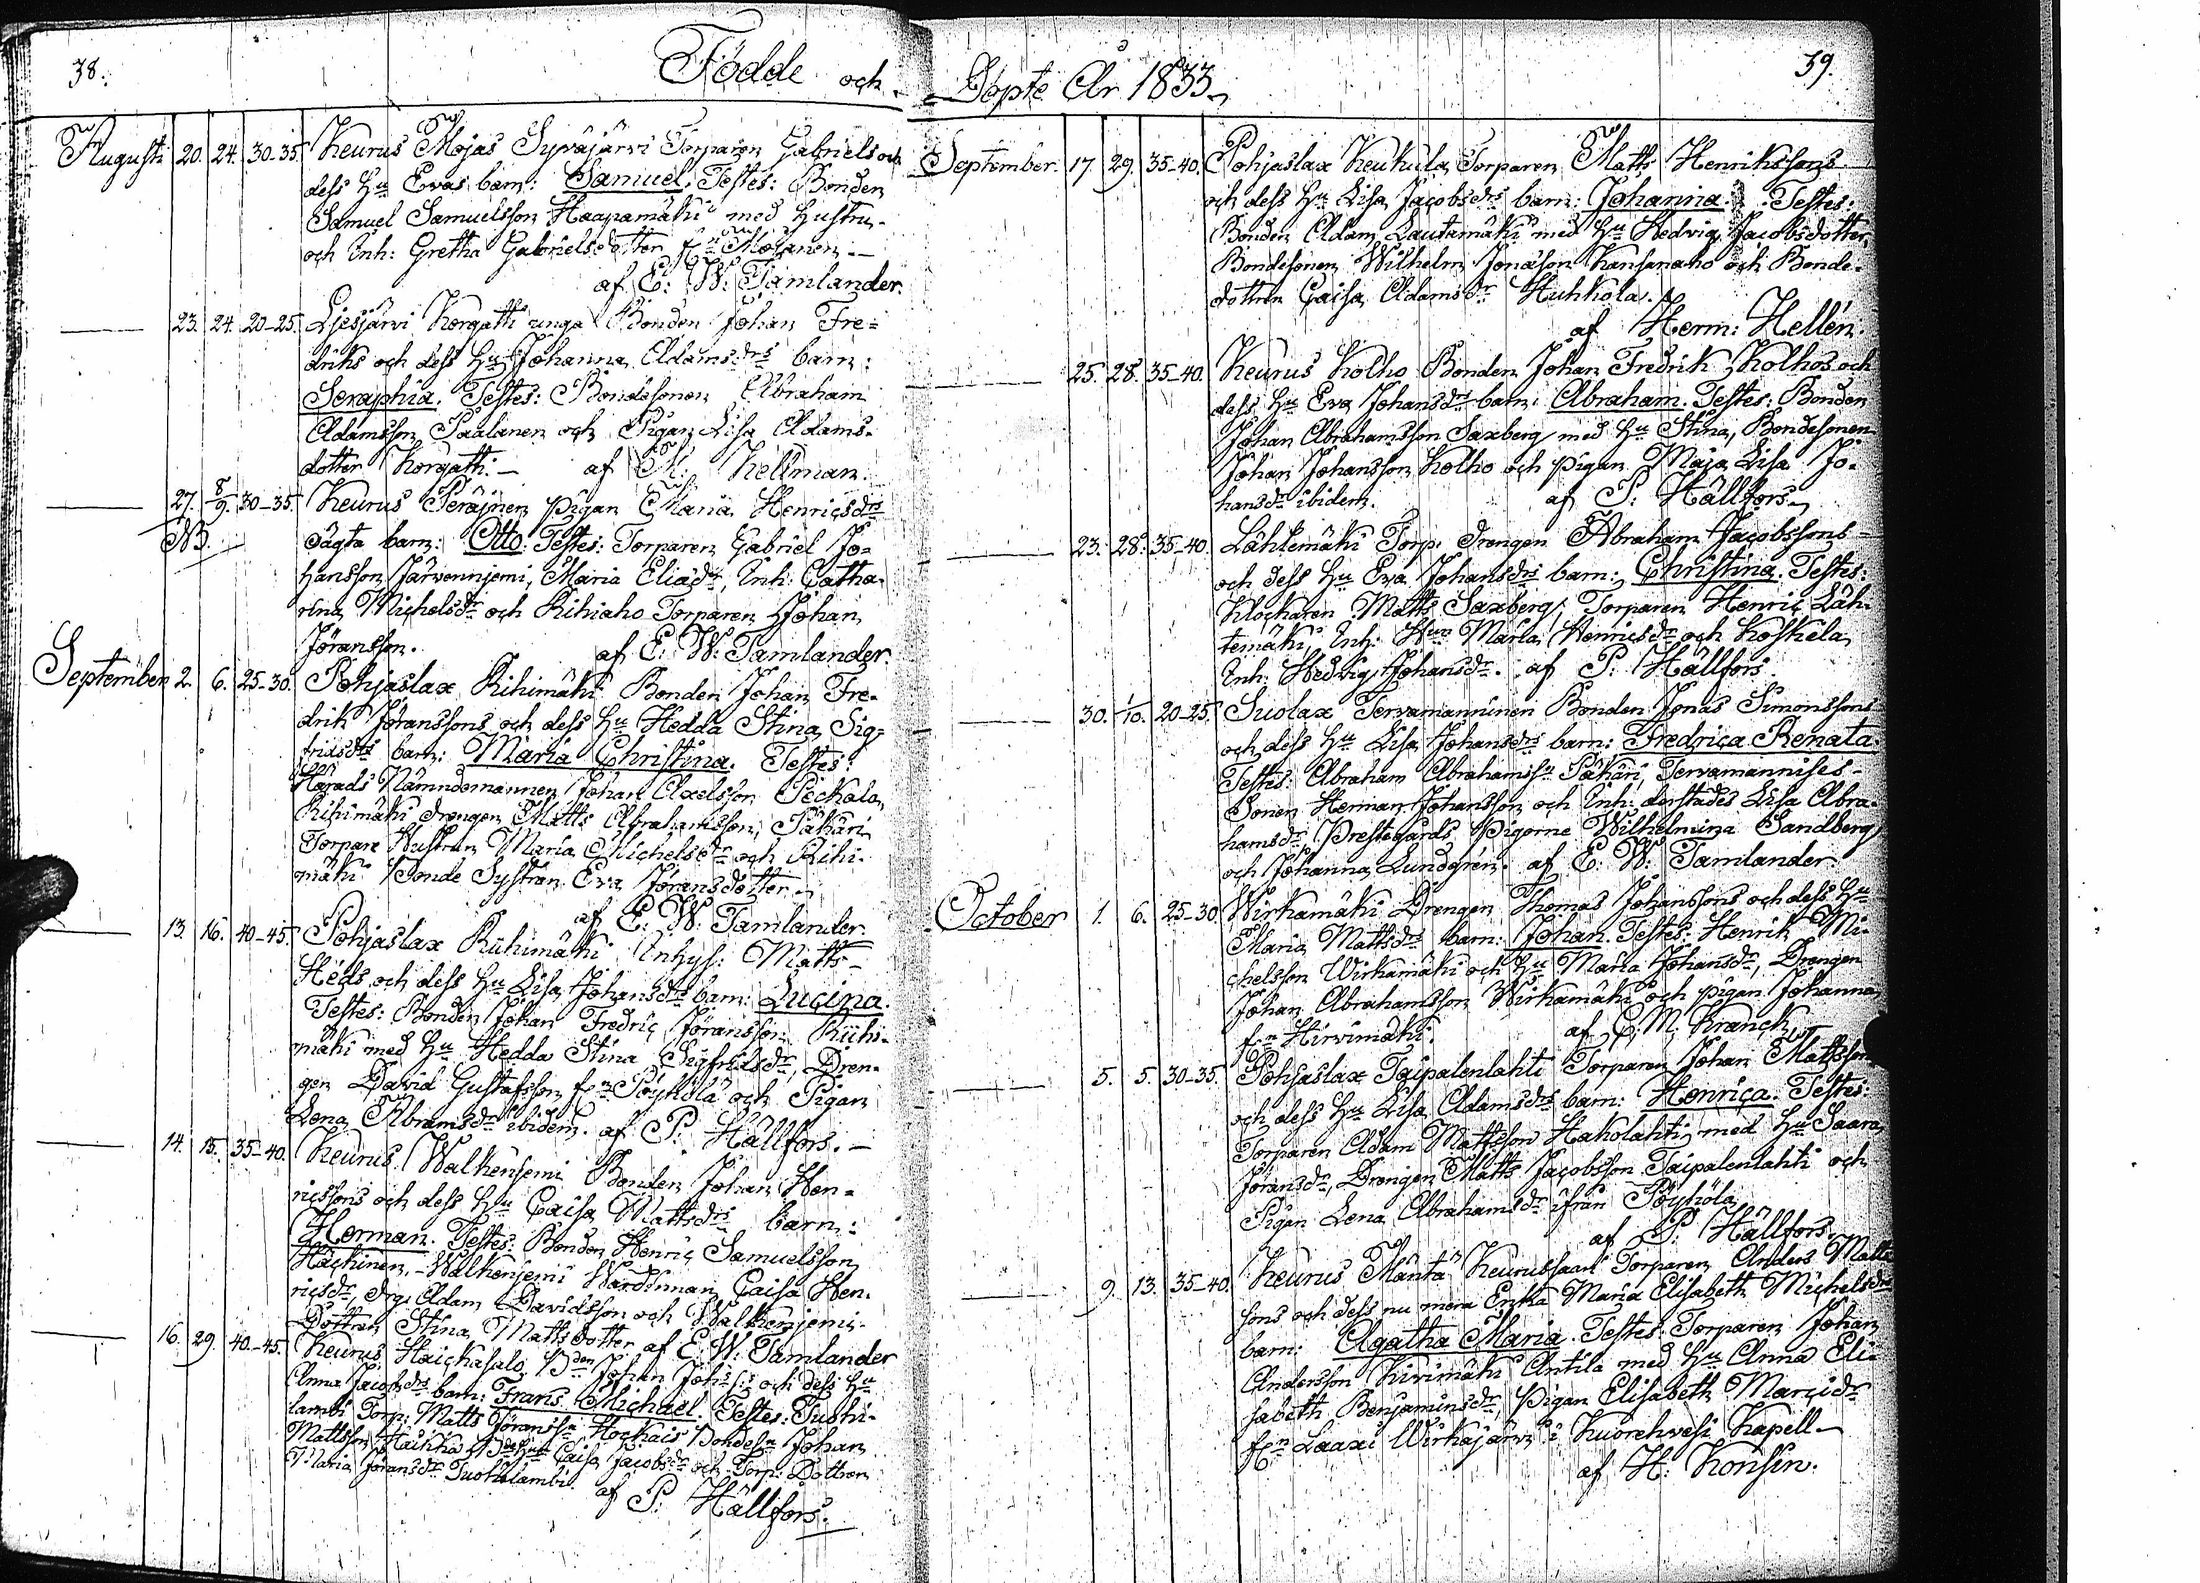 38.
Födde och
Augusti 20. 24. 30-35. Keurus Mojas Syväjärvi Torparen Gabriels och
dess Hu Evas barn: Samuel. Testes: Bonden
Samuel Samuelsson Haapamäki med Hustru
och Inh: Gretha Gabrielsdotter fr Mojanen
af E: W: Tamlander.
23. 24. 20-25. Liesjärvi Korgatti unga Bonden Johan Fre-
driks och dess Hu Johanna Adamsdrs barn:
Seraphia. Testes: Bondesonen Abraham
Adamsson Paalanen och Pigan Lisa Adams-
dotter Korgatti. af K: Hellman.
27. 8/9. 30-35. Keurus Peräinen pigan Maria Henricsdrs
NB.
oägta barn: Otto. Testes: Torparen Gabriel Jo-
hansson Järvenniemi, Maria Eliædr, Inh: Catha-
rina Michelsdr och Rihiaho Torparen Johan
Jöransson. af E: W: Tamlander.
September 2. 6. 25-30. Pohjaslax Rihimäki Bonden Johan Fre-
drik Jöranssons och dess Hu Hedda Stina Sig-
fridsdrs barn: Maria Christina. Testes:
Härads Nämndemannen Johan Axelsson Peckala,
Rihimäki drengen Matts Abrahamsson, Päkäri
Torpare Hustrun Maria Michelsdr och Rihi-
mäki Bonde Systran Eva Jöransdotter
af E: W: Tamlander
13. 16. 40-45. Pohjaslax Riihimäki Inhys: Matts
Heds och dess Hu Lisa Johansdrs barn: Lucina.
Testes: Bonden Johan Fredric Jöransson Riihi-
mäki med Hu Hedda Stina Sigfridsdr, Dren-
gen David Gustafsson frn Pöyhölä och Pigan
Lena Abramsdr ibidem. af P: Hällfors.
14. 15. 35-40. Keurus Walkeniemi Bonden Johan Hen-
ricssons och dess Hu Caisa Mattsdrs barn:
Herman. Testes: Bonden Henric Samuelsson
Häckinen, Walkeniemi Wärdinnan Caisa Hen-
ricsdr, drg: Adam Davidsson och Walkeniemi
Dottren Stina Mattsdotter af E: W: Tamlander
16. 29. 40-45. Keurus Haickasalo Bden Johan Johss:s och dess Hu
Anna Jacobsdrs barn: Frans Michael. Testes: Tuohi-
lambi Torp: Matts Jöranssn, Hockais Bondesn Johan
Mattsson, Haikka Caisa Jacobsdr och Torp: Dottren
Maria Jöransdr Tuohilambi. af P: Hällfors.
Döpte År 1833
39.
September. 17. 29. 35-40. Pohjaslax Keukula Torparen Matts Henrikssons
och dess Hu Lisa Jacobsdrs barn: Johanna. Testes:
Bonden Adam Lautamäki med Hu Hedvig Jacobsdotter,
Bondesonen Wilhelm Jonasson Kansanaho och Bonde-
dottren Caisa Adamsdr Huhkola.
af Herm: Hellén.
25. 28. 35-40. Keurus Kolho Bonden Johan Fredrik Kolhos och
dess Hu Eva Johansdrs barn: Abraham. Testes: Bonden
Johan Abrahamsson Saxberg med Hu Stina, Bondesonen
Johan Johansson Kolho och pigan Maja Lisa Jo-
hansdr ibidem. af P: Hällfors
23. 28. 35-40. Lähtemäki Torp. drengen Abraham Jacobssons
och dess Hu Eva Johansdrs barn: Christina. Testes:
Klockaren Matts Saxberg, Torparen Henric Läh-
temäki, Inh: Hun Maria Henricsdr och Koskela
Inh: Hedvig Johansdr. af P: Hällfors.
30. 1/10. 20-25. Suolax Tervamanninen Bonden Jonas Simonssons
och dess Hu Lisa Johansdrs barn: Fredrica Renata
Testes: Abraham Abrahamssn Päkäri, Tervamannises
Sonen Herman Johansson och Inh: derstädes Lisa Abra-
hamsdr. Prestegårds Pigorne Wilhelmina Sandberg
och Johanna Lundgrén. af E: W: Tamlander
October 1. 6. 25-30. Wirkamäki Drengen Thomas Johanssons och dess Hu
Maria Mattsdrs barn: Johan. Testes: Henrik Mi-
chelsson Wirkamäki och Hu Maria Johansdr, Drengen
Johan Abrahamsson Wirkamäki och pigan Johanna
frn Hirvimäki. af C: M: Kranck
5. 5. 30-35. Pohjaslax Taipalenlahti Torparen Johan Mattsson
och dess Hu Lisa Adamsdrs barn: Henrica. Testes:
Torparen Adam Mattsson Hakolahti med Hu Saara
Jöransdr, Drengen Matts Jacobsson Taipalenlahti och
Pigan Lena Abrahamsdr ifrån Pöyhölä
af P: Hällfors.
9. 13. 35-40. Keurus Mänttä Keurusaari Torparen Anders Matts
sons och dess nu mera Enka Maria Elisabeth Michelsdrs
barn: Agatha Maria. Testes: Torparen Johan
Andersson Kivimäki Antila med Hu Anna Eli-
sabeth Benjaminsdr, Pigan Elisabeth Marcidr
frn Laaxi Wirkajärvi i Kuorehvesi Kapell
af H: Konsin.